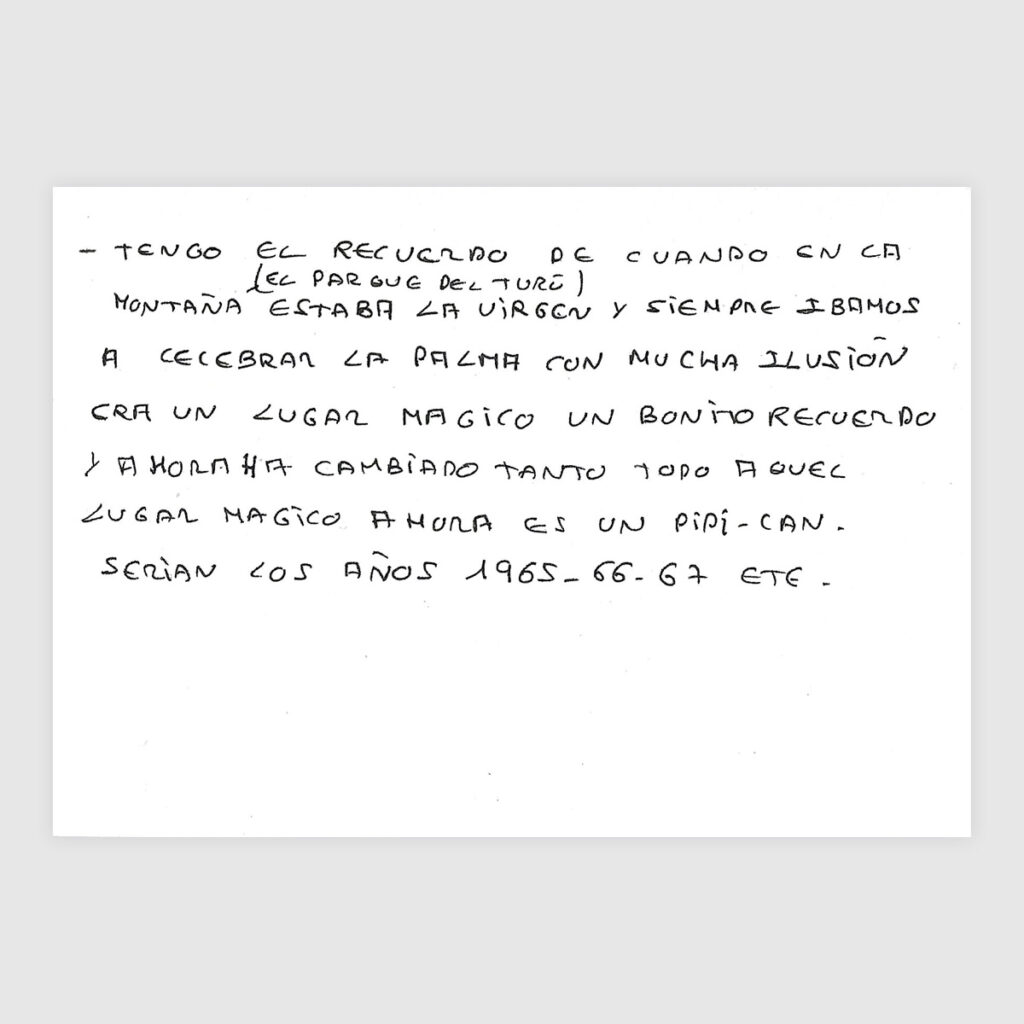 - TENGO EL RECUERDO DE CUANDO EN LA
(EL PARQUE DEL TURÓ)
MONTAÑA ESTABA LA VIRGEN Y SIEMPRE IBAMOS
A CELEBRAR LA PALMA CON MUCHA ILUSIÓN
ERA UN LUGAR MAGICO UN BONITO RECUERDO
Y AHORA HA CAMBIADO TANTO TODO AQUEL
LUGAR MAGICO AHORA ES UN PIPÍ-CAN.
SERIAN LOS AÑOS 1965-66-67 ETE.